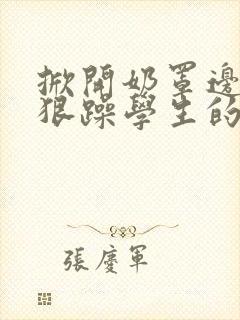 掀開奶罩邊
狠躁學生的
張慶軍